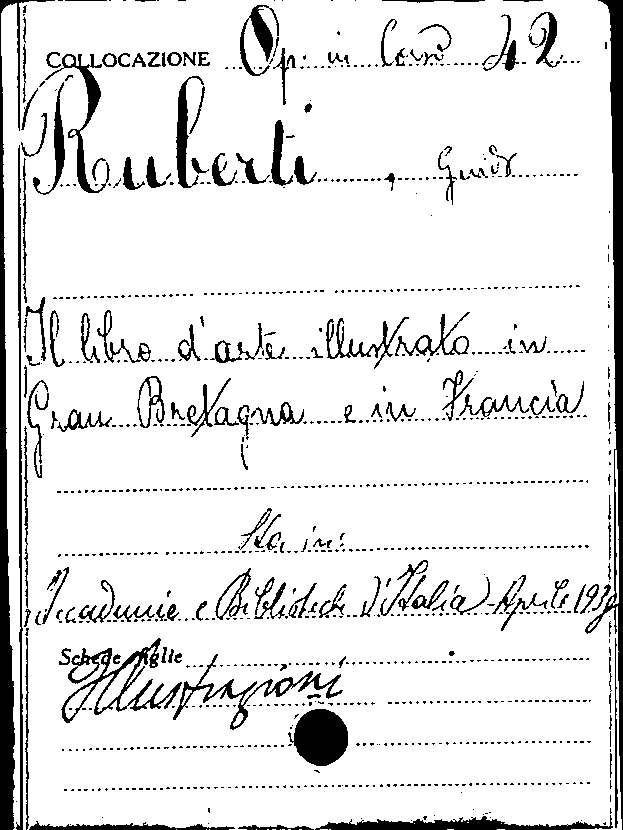 COLLOCAZIONE Op. in Corso 42
Ruberti, Guido
Il libro d'arte illustrato in
Gran Bretagna e in Francia
Sta in:
Accademie e Biblioteche d'Italia - Aprile 1939
Schede figlie
Illustrazioni